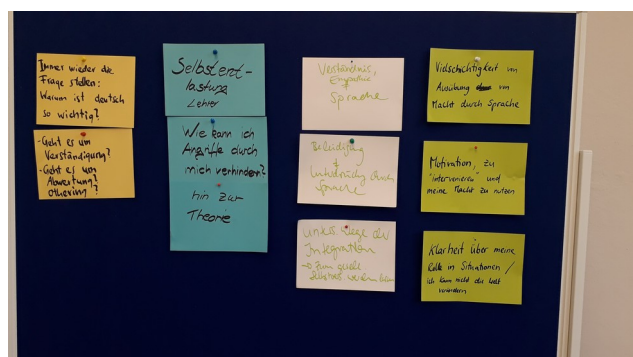 Immer wieder die
Frage stellen:
Warum ist deutsch
so wichtig?
- Geht es um
Verständigung?
- Geht es um
Abwertung?
othering?
Selbstent-
lastung
Lehrer
Wie kann ich
Angriffe durch
mich verhindern?
hin zur
Theorie
Verständnis,
Empathie
Sprache
Beleidigung
durch
Sprache
Unters. Wege der
Integration
Vielschichtigkeit von
Ausübung von
Macht durch Sprache
Motivation, zu
"intervenieren" und
meine Macht zu nutzen
Klarheit über meine
Rolle in Situationen /
ich kann nicht die Welt
verändern